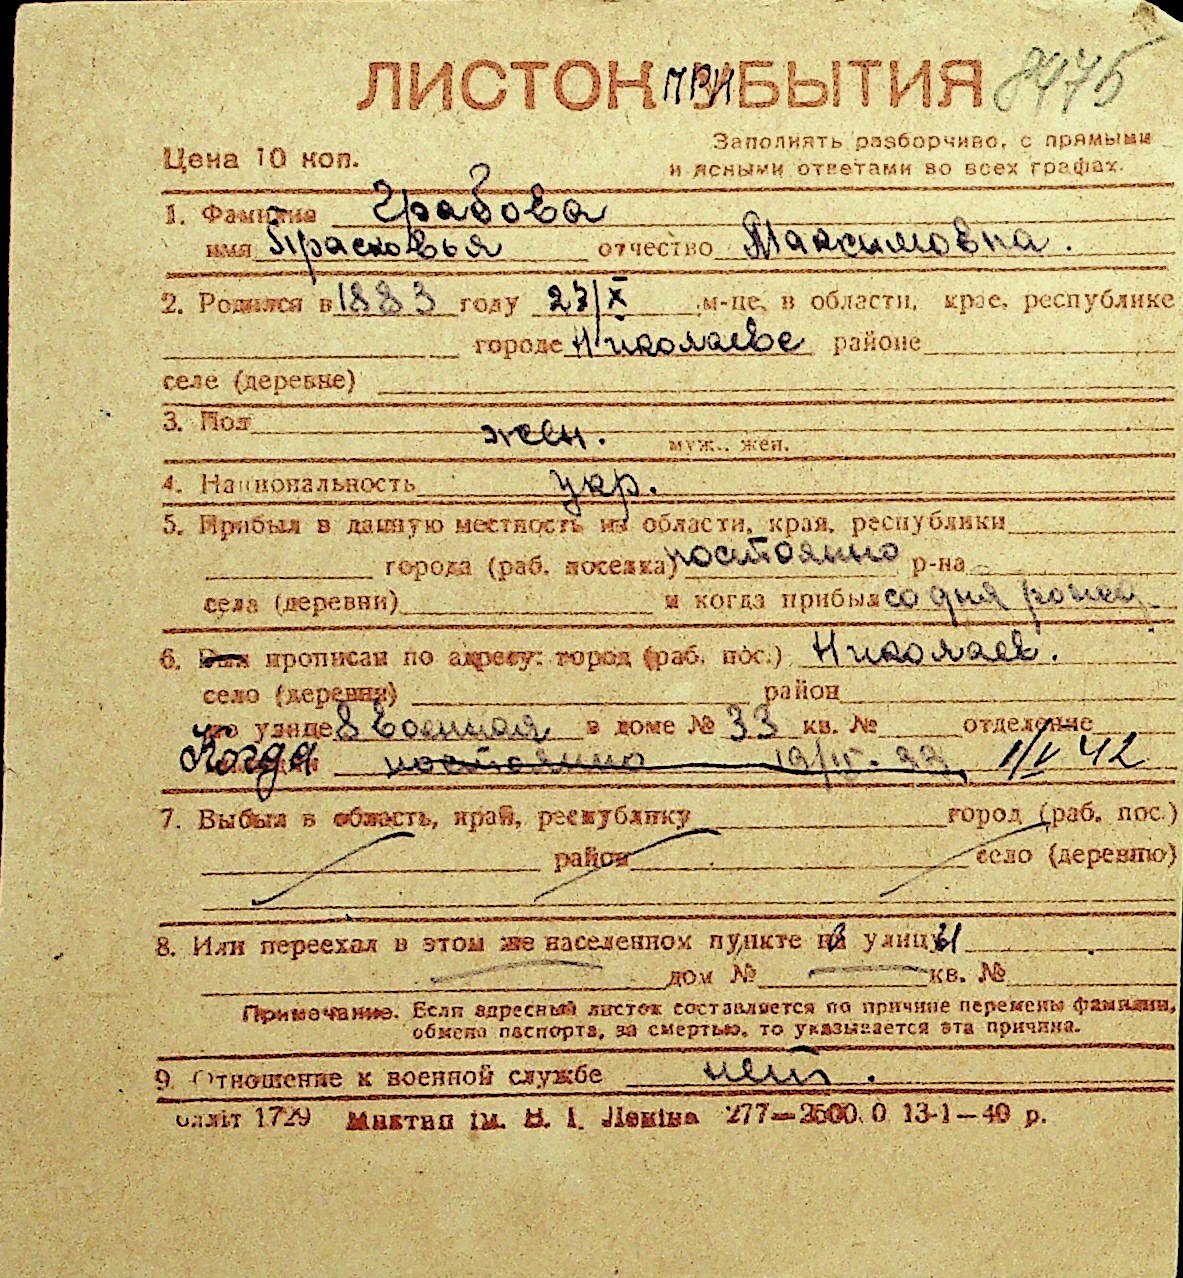 ЛИСТОК ПРИБЫТИЯ 8475
Цена 10 коп.
Заполнять разборчиво, с прямыми
и ясными ответами во всех графах.
1. Фамилия Грабова
имя Прасковья отчество Максимовна.
2. Родился в 1883 году 23/X м-це, в области, крае, республике
городе Николаеве районе
селе (деревне)
3. Пол жен.
муж., жен.
4. Национальность укр.
5. Прибыл в данную местность из области, края, республики
города (раб. поселка) постоянно р-на
села (деревни) и когда прибыл со дня рожд.
6. Был прописан по адресу: город (раб. пос.) Николаев.
село (деревня) район
по улице 8 Военная в доме № 33 кв. № отделение
Когда постоянно 1/V 42
7. Выбыл в область, край, республику город (раб. пос.)
район село (деревню)
8. Или переехал в этом же населенном пункте на улицы
дом № кв. №
Примечание. Если адресный листок составляется по причине перемены фамилии,
обмена паспорта, за смертью, то указывается эта причина.
9. Отношение к военной службе нет.
1729 Миктип ім. В. І. Леніна 277—2500.0 13-1—40 р.